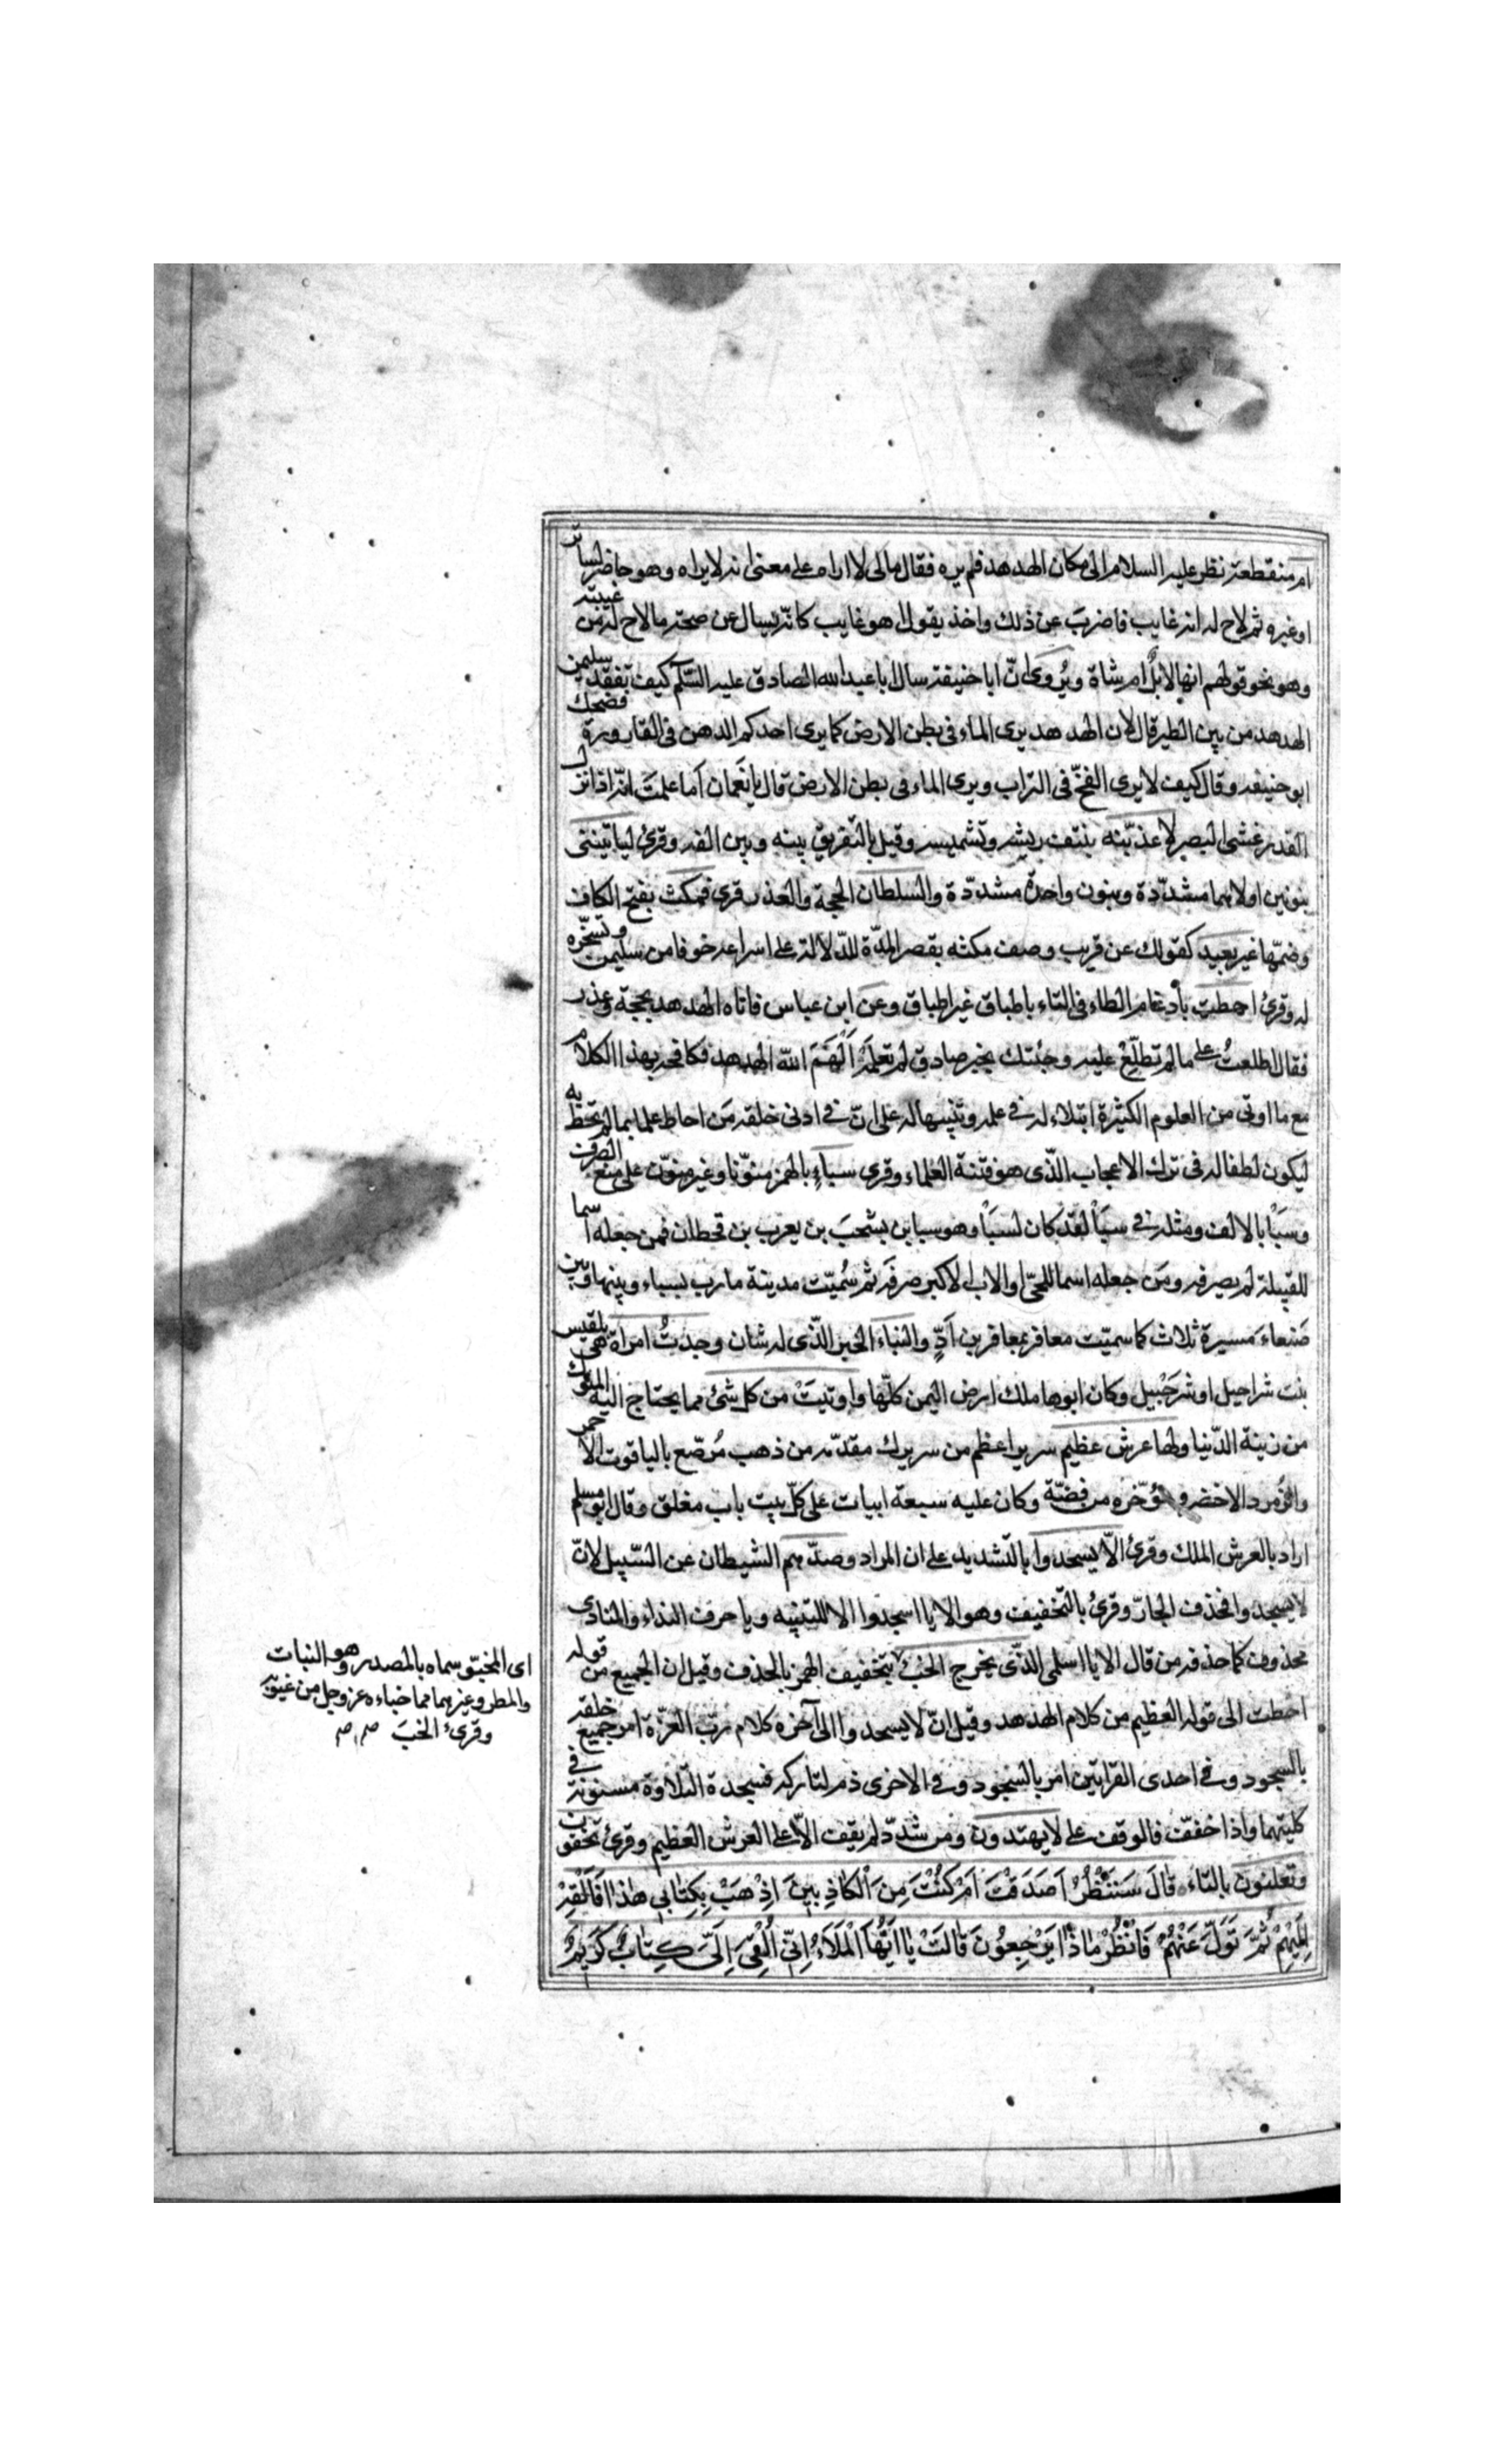 ام منقطعة نظر عليه السلام الى مكان الهدهد فلم يره فقال مالى لا اراه على معنى انه لا يراه وهو حاضر لساتر
او غيره ثم لاح له انه غايب فاضرب عن ذلك واخذ يقول اهو غايب كانّه يسال عن صحة مالاح له من غيبته
وهو نحو قولهم انها لابلٌ ام شاة ويُروى انّ ابا حنيفة سال ابا عبد الله الصادق عليه السّلم كيف تفقد سليمن
الهدهد من بين الطير قال لان الهدهد يرى الماء فى بطن الارض كما يرى احدكم الدهن فى القارورة فضحك
ابو حنيفه وقال كيف لا يرى الفخّ فى التراب ويرى الماء فى بطن الارض قال يا نعمان أما علمتَ انّه اذا نزل
القدر غشى البصر لاعذبّنه بنتف ريشه وتشميسه وقيل بالتفريق بينه وبين الفه وقرئ لياتينّنى
بنونين اولاهما مشدّدة وبنون واحدة مشدّدة والسلطان الحجة والعذر قرى فمكث بفتح الكاف
وضمّها غير بعيد كقولك عن قريب وصف مكثه بقصر المدّة للدّلالة على اسراعه خوفا من سليمن وتسخّره
له وقرئ احطت بأدغام الطاء فى التاء باطباق غير اطباق وعن ابن عباس فاتاه الهدهد بحجة وعذر
فقال اطلعتُ على مالم تطلّع عليه وجئتك بخبر صادق لم تعلمْهُ اَلْهَمَ الله الهدهد فكافحه بهذا الكلام
مع ما اوتى من العلوم الكثيرة ابتلاء له فى علمه وتنبيها له على انّ فى ادنى خلقه مَن احاط علما بما لم تحظ به
ليكون لطفا له فى ترك الاعجاب الّذى هو فتنة العلماء وقرى سباءٍ بالهمز منوّنا وغير منوّن على منع الصرف
وسَبَاْ بالالف ومثله فى سبَاْ لقد كان لسبَاْ وهو سبا بن يشحبَ بن يعرب بن قحطان فمن جعله اسما
للقبيلة لم يصرفه ومَن جعله اسما للحىّ او الاب الاكبر صرفَه ثم سُميّت مدينة مارب بسباء وبينها وبين
صَنعاءَ مسيرة ثلاث كما سميّت معافر بمعافر بن اَدٍّ والنباء الخبر الّذى له شان وجدتُ امراة هى بلقيس
بنت شراحيل او شرَحْبيل وكان ابوها ملك ارض اليمن كلّها واوتيَتْ من كل شئ مما يحتاج اليه الملوك
من زينة الدّنيا ولها عرش عظيم سرير اعظم من سريرك مقدّمه من ذهب مُرصّع بالياقوت الاحمر
والزُمرد الاخضر ومؤخّره من فضّة وكان عليه سبعة ابيات على كلّ بيت باب مغلق وقال ابو مسلم
اراد بالعرش الملك وقرئ الاّ يسجدوا بالتشديد على ان المراد وصدّهم الشيطان عن السّبيل لانّ
لا يسجدوا فحذف الجارّ وقرئ بالتخفيف وهو الا يا اسجدوا الا للتنبيه ويا حرف النداء والمنادى
محذوف كما حذفه من قال الا يا اسلمى الّذى يخرج الخبء بتخفيف الهمز بالحذف وقيل ان الجميع من قوله
احطت الى قوله العظيم من كلام الهدهد وقيل انّ لا يسجدوا الى آخره كلام ربّ العزّة امر جميع خلقه
بالسجود وفى احدى القراتين امر بالسّجود وفى الاخرى ذم لتاركه فسجدة التّلاوة مسنونة فى
كلتيهما واذا خففّت فالوقف على لا يهتدون ومن شدّد لم يقف الاّ على العرش العظيم وقرئ تخفون
وتعلنون بالتاء قالَ سَنَنْظُرُ اَصَدَقْتَ اَمْ كُنْتَ مِنَ الْكاذِبينَ اِذْهَبْ بِكِتابي هٰذا فَاَلْقِهْ
اِلَيْهِمْ ثُمَّ تَوَلَّ عَنْهُمْ فَانْظُرْ ماذا يَرْجِعُونَ قالَتْ يا اَيُّهَا الْمَلَاءُ اِنّي اُلْقِىَ اِلَىَّ كِتابٌ كَريمٌ
اى المخبّو سماه بالمصدر وهو النبات
والمطر وغيرهما مما خباءه عز وجل من غيوبه
وقرئ الخبَ صم